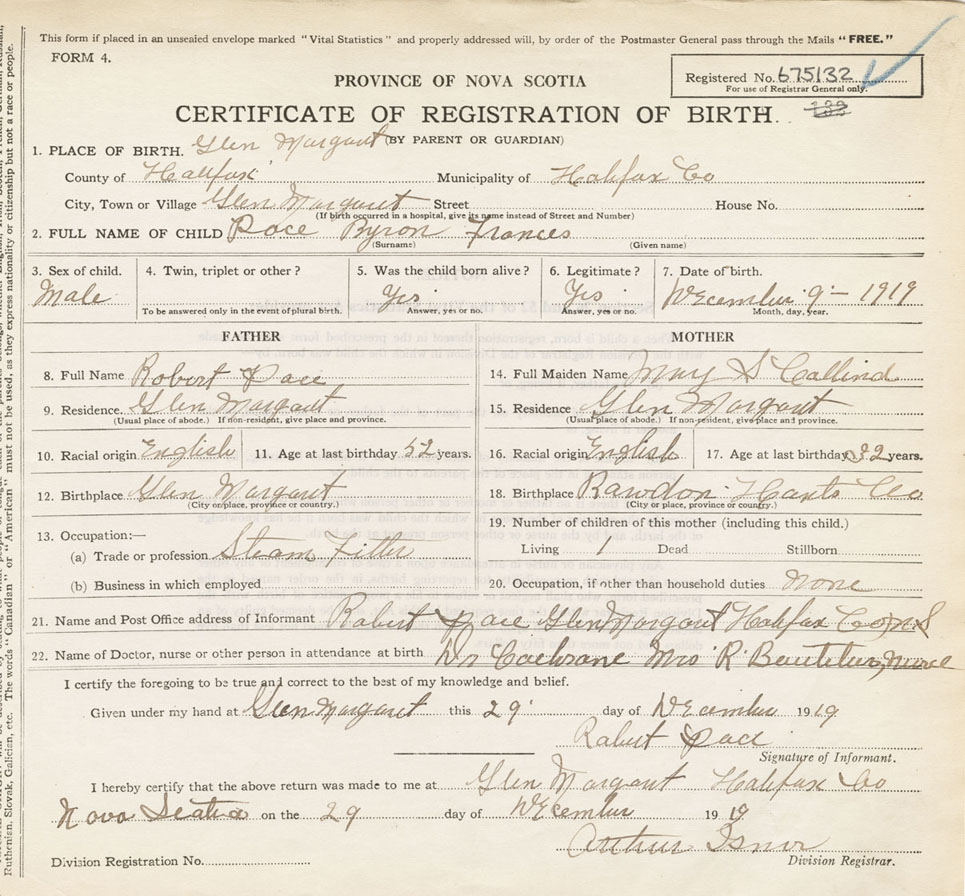 This form if placed in an unsealed envelope marked "Vital Statistics" and properly addressed will, by order of the Postmaster General pass through the Mails "FREE."
FORM 4.
Registered No. 675132
For use of Registrar General only.
PROVINCE OF NOVA SCOTIA
CERTIFICATE OF REGISTRATION OF BIRTH.
(BY PARENT OR GUARDIAN)
1. PLACE OF BIRTH. Glen Margaret
County of Halifax Municipality of Halifax Co
City, Town or Village Glen Margaret Street House No.
(If birth occurred in a hospital, give its name instead of Street and Number)
2. FULL NAME OF CHILD Pace Byron Frances
(Surname) (Given name)
3. Sex of child. 4. Twin, triplet or other? 5. Was the child born alive? 6. Legitimate? 7. Date of birth.
Male Yes Yes December 9 - 1919
To be answered only in the event of plural birth. Answer, yes or no. Answer, yes or no. Month, day, year.
FATHER MOTHER
8. Full Name Robert Pace 14. Full Maiden Name May S
9. Residence. Glen Margaret 15. Residence Glen Margaret
(Usual place of abode.) If non-resident, give place and province. (Usual place of abode.) If non-resident, give place and province.
10. Racial origin English 11. Age at last birthday 52 years. 16. Racial origin English 17. Age at last birthday 32 years.
12. Birthplace Glen Margaret 18. Birthplace Rawdon Hants Co
(City or place, province or country.) (City or place, province or country.)
13. Occupation:— 19. Number of children of this mother (including this child.)
(a) Trade or profession Steam Fitter Living 1 Dead Stillborn
(b) Business in which employed 20. Occupation, if other than household duties none
21. Name and Post Office address of Informant Robert Pace Glen Margaret Halifax Co N S
22. Name of Doctor, nurse or other person in attendance at birth Dr Cochrane Mrs R Nurse
I certify the foregoing to be true and correct to the best of my knowledge and belief.
Given under my hand at Glen Margaret this 29 day of December 1919
Robert Pace
Signature of Informant.
I hereby certify that the above return was made to me at Glen Margaret Halifax Co
Nova Scotia on the 29 day of December 1919
Arthur Isnor
Division Registration No. Division Registrar.